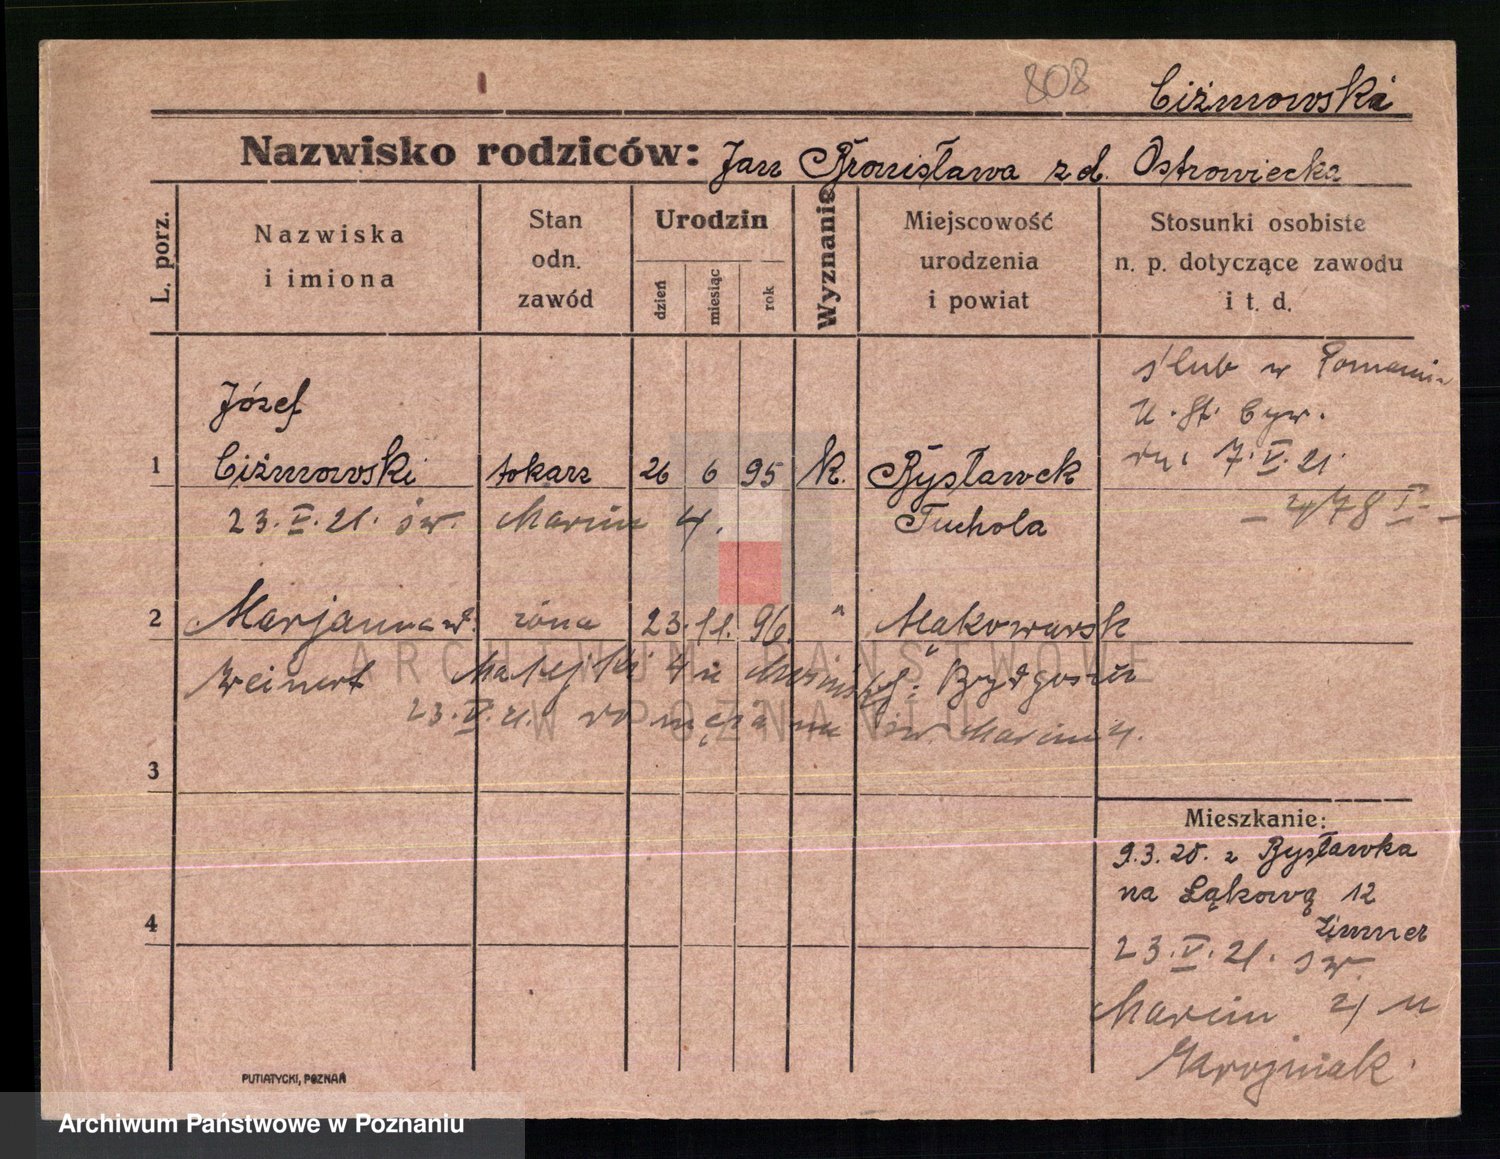 808
Ciżmowski
Nazwisko rodziców: Jan Bronisława z d. Ostrowiecka
L. porz.
Nazwiska
i imiona
Stan
odn.
zawód
Urodzin
dzień
miesiąc
rok
Wyznanie
Miejscowość
urodzenia
i powiat
Stosunki osobiste
n. p. dotyczące zawodu
i t. d.
ślub w Poznaniu
U. St. Cyw.
dn. 7.V.21.
Józef
1 Ciżmowski tokarz 26 6 95 k. Bysławek
23.V.21. św. Marcin 4. Tuchola
2 Marjanna żona 23. 11. 96. " Makowarsk
Weinert Matejki 4 Bydgoszcz
23.V.21. do męża na św. Marcin 4.
3
4
Mieszkanie:
9.3.20. z Bysławka
na Łąkową 12
Zimmer
23.V.21. św.
Marcin 4 u
PUTIATYCKI, POZNAŃ
ARCHIWUM PAŃSTWOWE
W POZNANIU
Archiwum Państwowe w Poznaniu